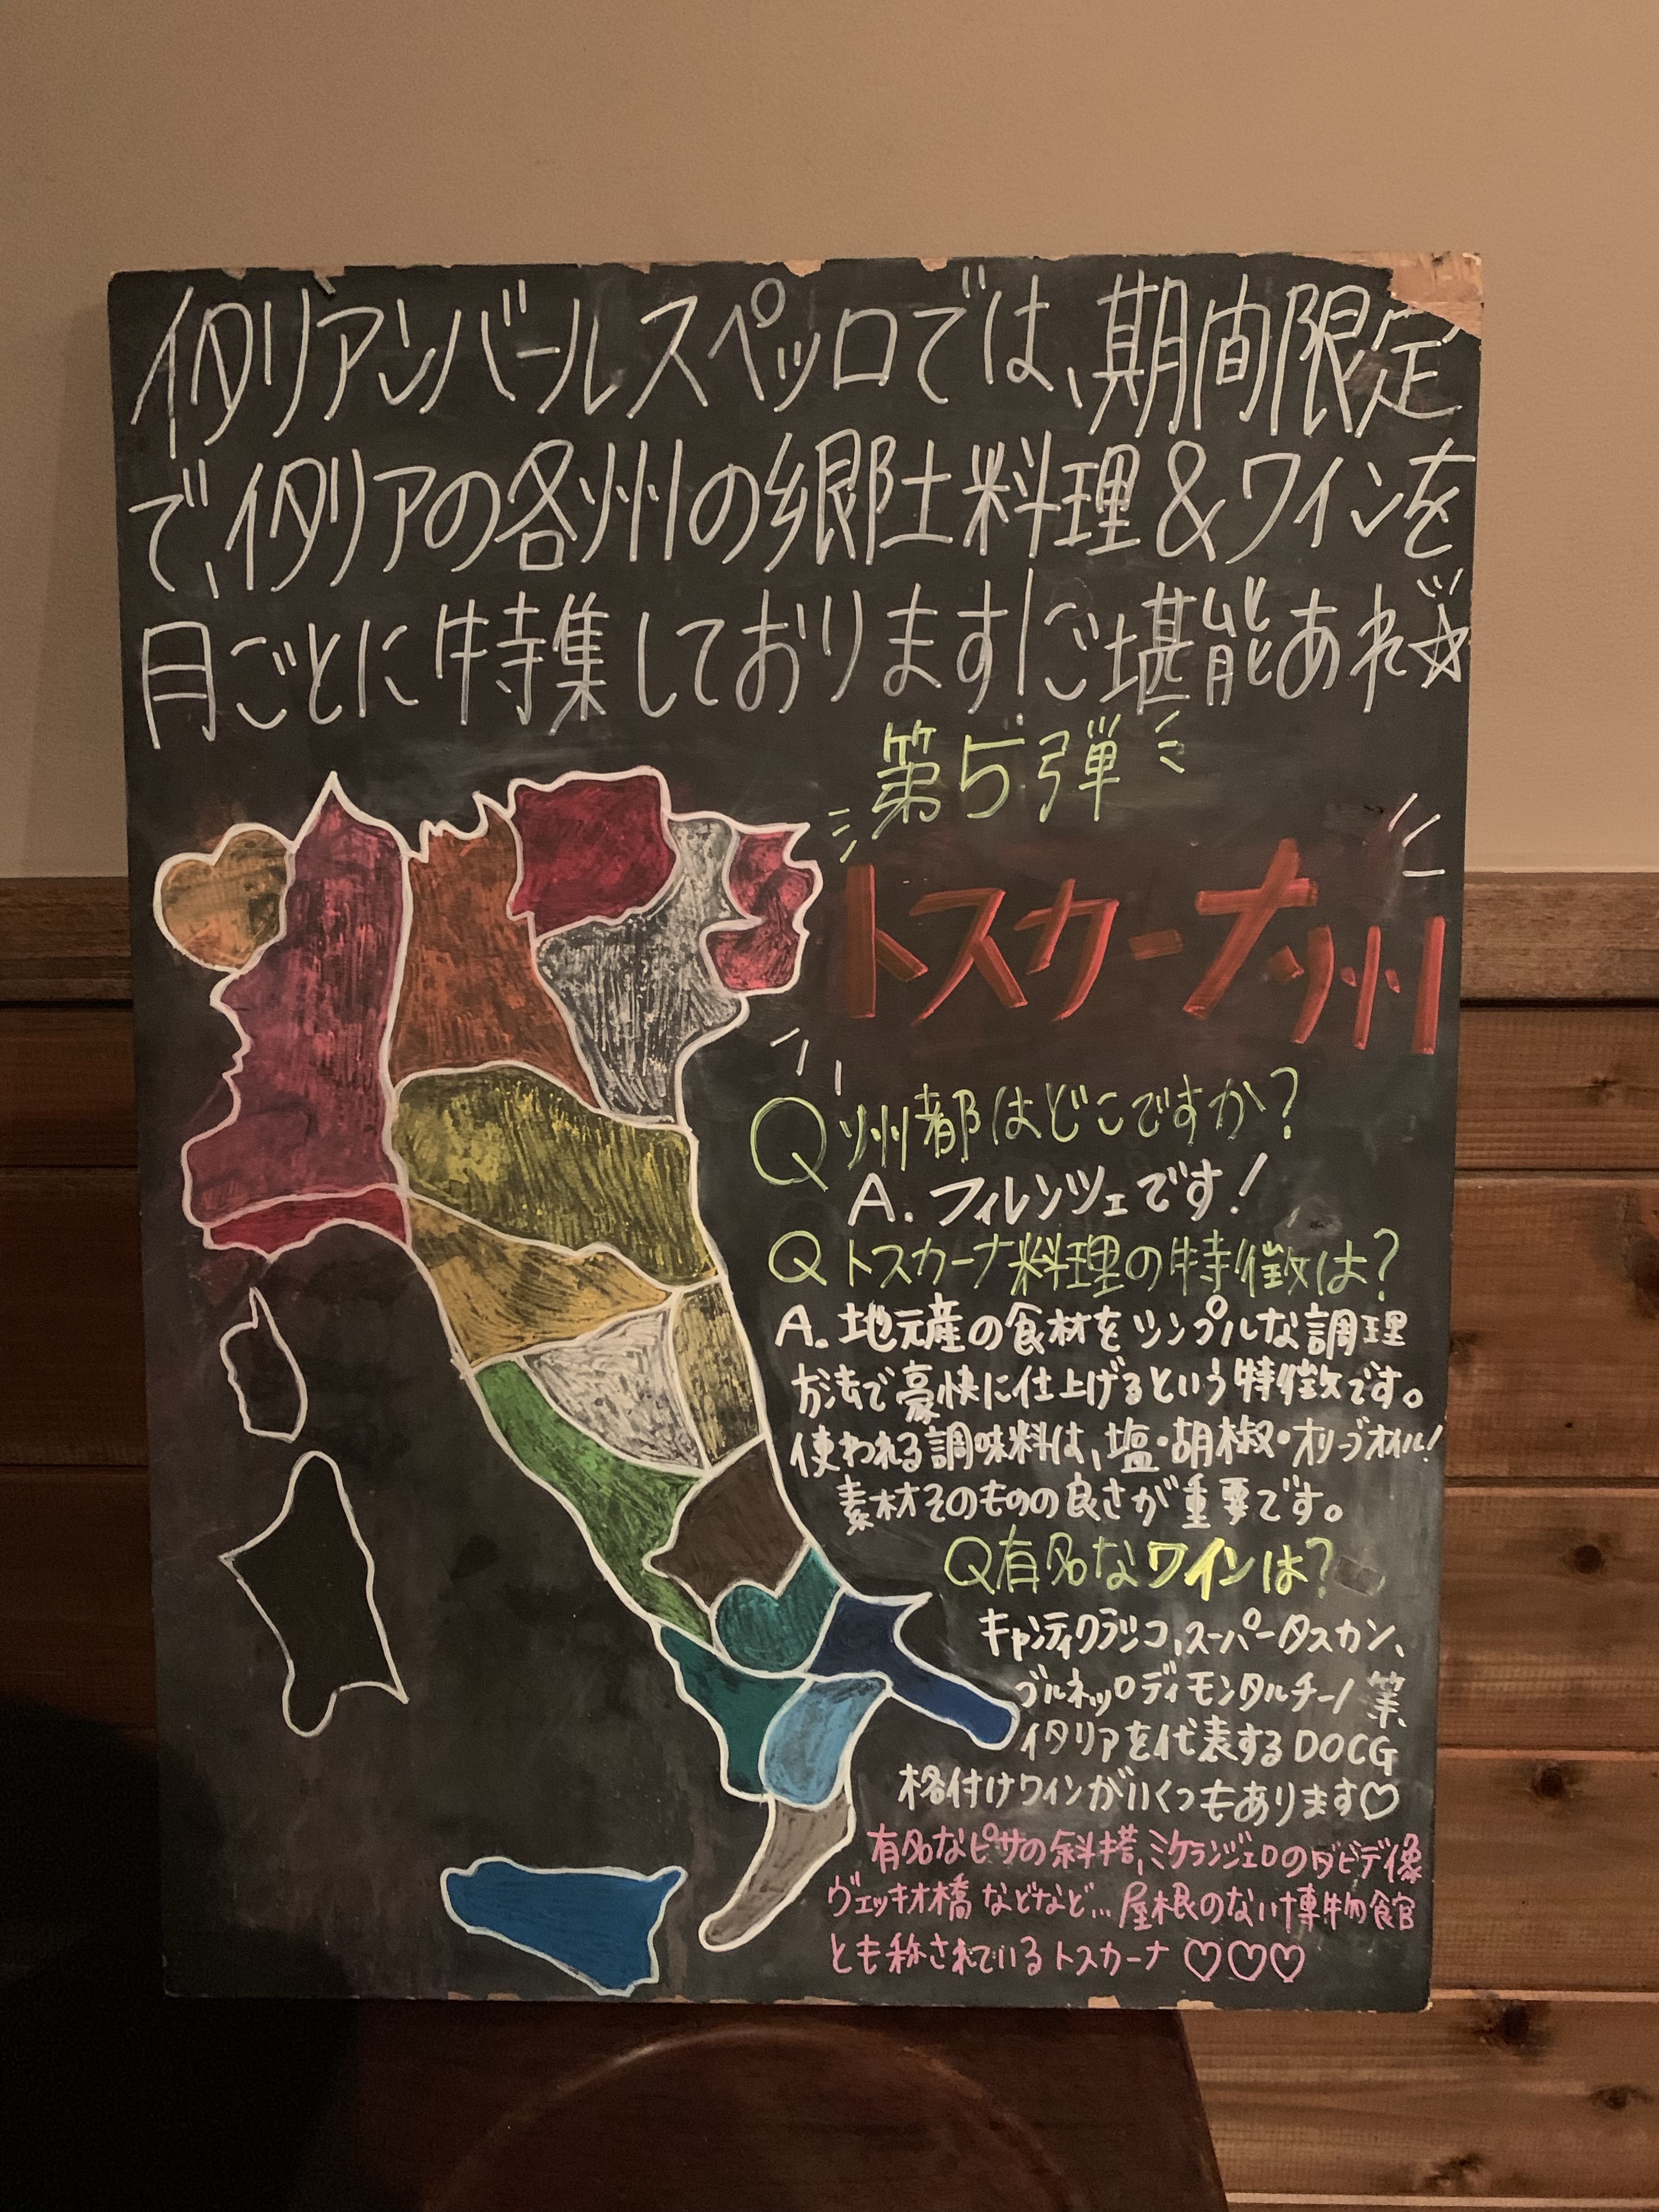 イタリアンバールスペッロでは、期間限定
で、イタリアの各州の郷土料理&ワインを
月ごとに特集しております!ご堪能あれ☆
第5弾
トスカーナ州
Q 州都はどこですか?
A. フィレンツェです!
Q トスカーナ料理の特徴は?
A. 地元産の食材をシンプルな調理
方法で豪快に仕上げるという特徴です。
使われる調味料は、塩・胡椒・オリーブオイル!
素材そのものの良さが重要です。
Q有名なワインは?
キャンティクラシコ、スーパータスカン、
ブルネッロディモンタルチーノ 等、
イタリアを代表するDOCG
格付けワインがいくつもあります♡
有名なピサの斜塔、ミケランジェロのダビデ像
ヴェッキオ橋 などなど... 屋根のない博物館
とも称されているトスカーナ ♡♡♡